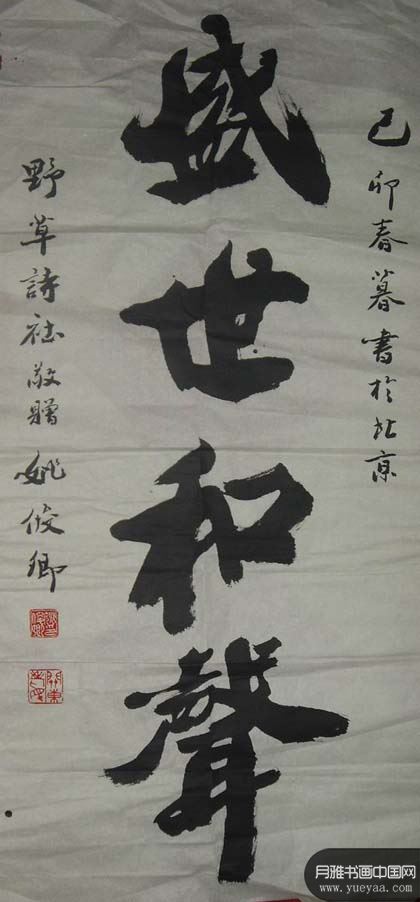 己卯春暮書於北京
盛世和聲
野草詩社敬贈 姚俊卿
月雅书画中国网
www.yueyaa.com